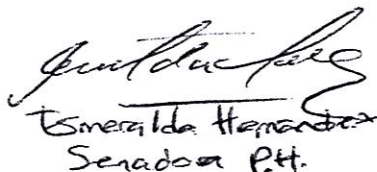 Esmeralda Hernández
Senadora P.H.